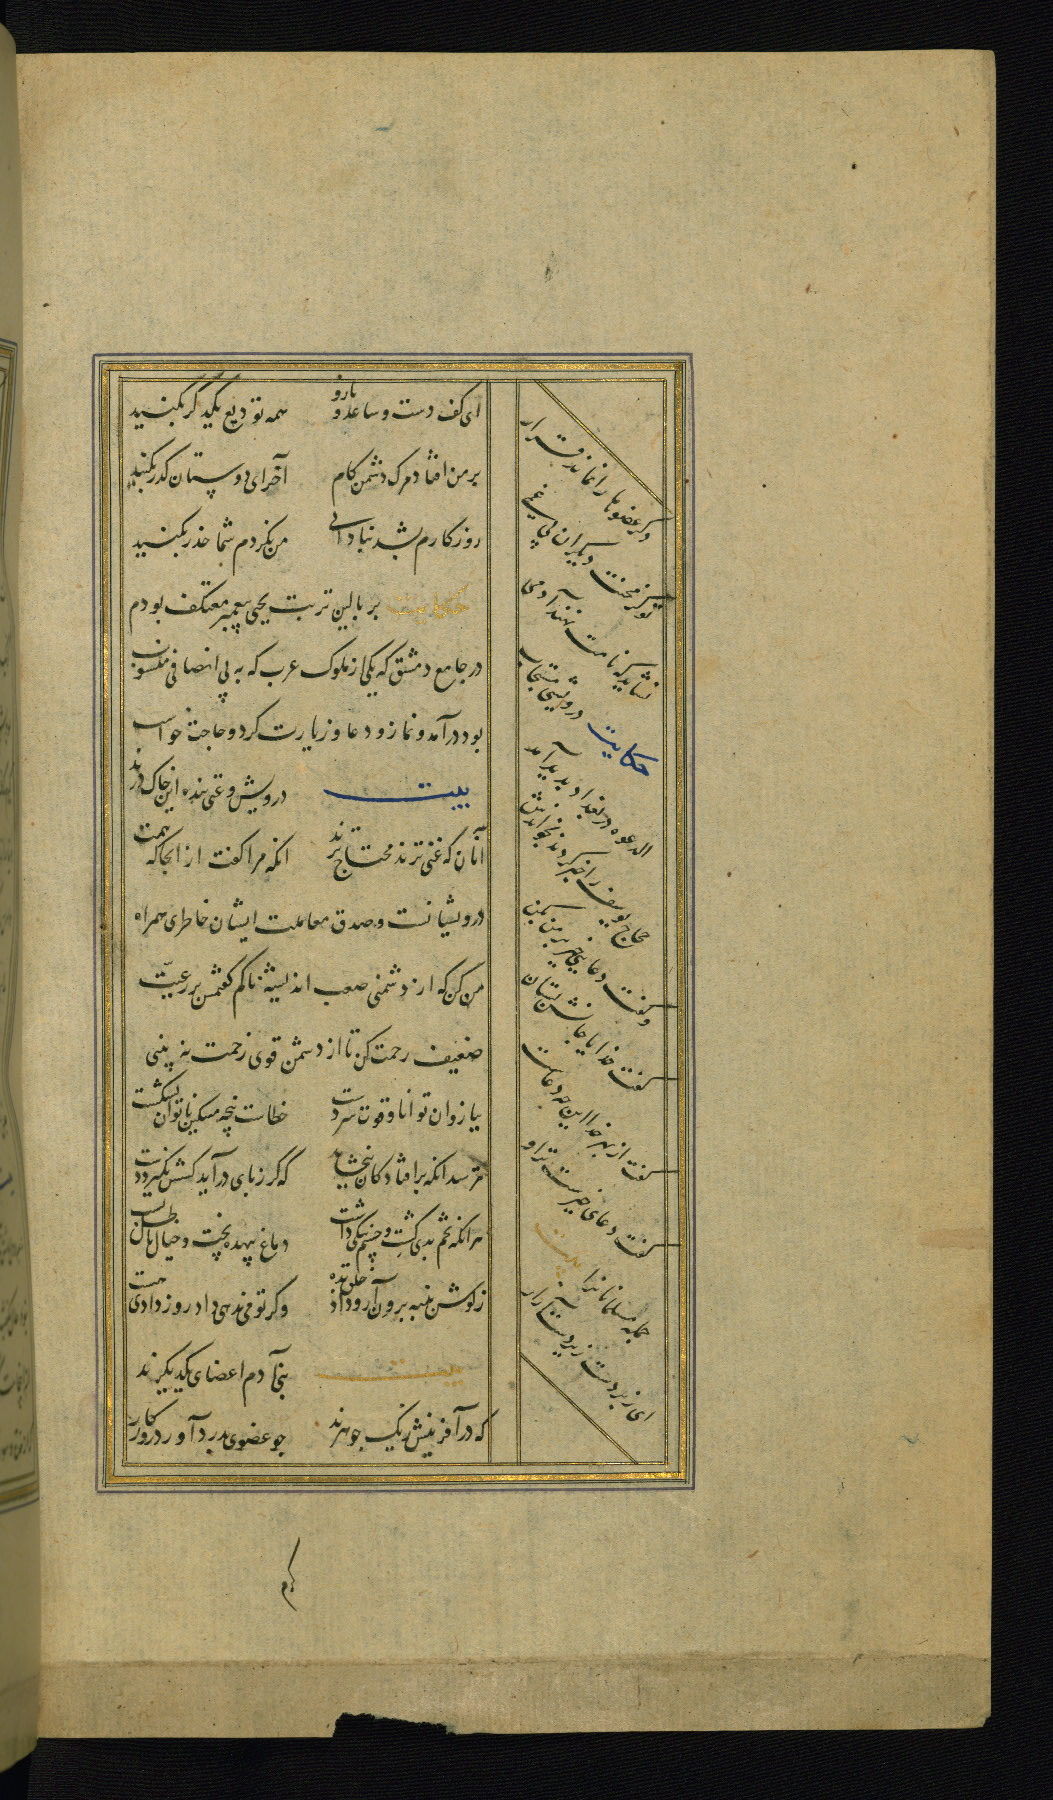 ای کف دست و ساعد و بازو همه تودیع یکدگر بکنید
بر من افتاد مرگ دشمن کام آخر ای دوستان گذر بکنید
روزگارم بشد بنادانی من نکردم شما حذر بکنید
حکایت بر بالین تربت یحیی پیغمبر معتکف بودم
در جامع دمشق که یکی از ملوک عرب که به بی انصافی منسوب
بود درآمد و نماز و دعا و زیارت کرد و حاجت خواست
بیت درویش و غنی بنده این خاک درند
آنان که غنی ترند محتاج ترند آنکه مرا گفت از آنجا که همت
درویشانست و صدق معاملت ایشان خاطری همراه
من کن که از دشمنی صعب اندیشه ناکم گفتمش بر رعیت
ضعیف رحمت کن تا از دشمن قوی زحمت نه بینی
ببازوان توانا و قوت سر دست خطاست پنجه مسکین ناتوان بشکست
نترسد آنکه بر افتادگان نبخشاید که گر ز پای درآید کسش نگیرد دست
هر آنکه تخم بدی کشت و چشم نیکی داشت دماغ بیهده پخت و خیال باطل بست
ز گوش پنبه برون آر و داد خلق بده و گر تو می ندهی داد روز دادی هست
بیت بنی آدم اعضای یکدیگرند
که در آفرینش ز یک جوهرند چو عضوی بدرد آورد روزگار
دگر عضوها را نماند قرار
تو کز محنت دیگران بی غمی
نشاید که نامت نهند آدمی
حکایت درویشی مستجاب
الدعوه در بغداد پدید آمد
حجاج یوسف را خبر کردند بخواندش
و گفت دعای خیر بر من بکن
گفت خدایا جانش بستان
گفت از بهر خدا این چه دعاست
گفت دعای خیرست ترا و
جمله مسلمانانرا بیت
ای زبردست زیردست آزار